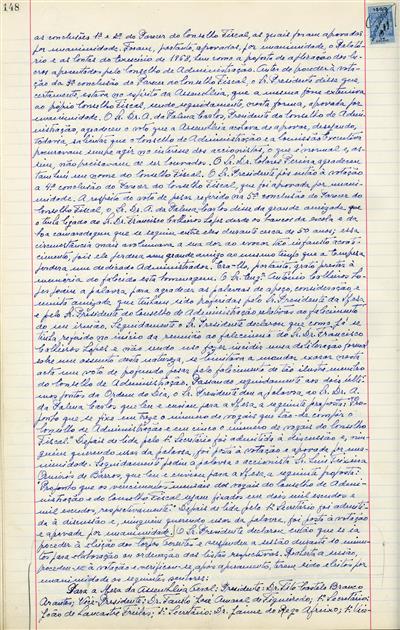 148
as conclusões 1ª e 2ª do Parecer do Conselho Fiscal, as quais foram aprovadas
por unanimidade. Foram, portanto, aprovados, por unanimidade, o Relató-
rio e as contas do exercício de 1958, bem como a proposta de aplicação dos lu-
cros apresentados pelo Conselho de Administração. Antes de proceder à vota-
ção da 3ª conclusão do Parecer do Conselho Fiscal, o Sr. Presidente disse que,
certamente, estava no espírito da Assembleia, que a mesma fosse extensiva
ao próprio Conselho Fiscal, sendo, seguidamente, nesta forma, aprovada por
unanimidade. O Sr. Dr. A. da Palma Carlos, Presidente do Conselho de Admi-
nistração, agradeceu o voto que a Assembleia acabava de aprovar, desejando,
todavia, salientar que o Conselho de Administração e a Comissão Executiva
procuravam sempre agir no interesse dos accionistas, o que é normal e, as-
sim, não precisavam de ser louvados. O Sr. Dr. Colares Pereira agradeceu
também em nome do Conselho Fiscal. O Sr. Presidente pôs então à votação
a 4ª conclusão do Parecer do Conselho Fiscal, que foi aprovada por unani-
midade. A respeito do voto de pesar referido na 5ª conclusão do Parecer do
Conselho Fiscal, o Sr. Dr. A. da Palma Carlos disse do grande amizade que
o tinha ligado ao Sr. Dr. Francisco Calheiros Lopes desde os bancos da escola e da
boa camaradagem que se seguiu entre eles durante cerca de 50 anos; essa
circunstância mais avolumava a sua dor ao evocar tão infausto aconte-
cimento, pois ele perdera um grande amigo ao mesmo tempo que a Empresa
perdera um dedicado Administrador. Era-lhe, portanto, grato prestar à
memória do falecido esta homenagem. O Sr. Engº António Calheiros Lo-
pes pediu a palavra para agradecer as palavras de apreço, consideração e
muita amizade que tinham sido proferidas pelo Sr. Presidente da Mesa
e pelo Sr. Presidente do Conselho de Administração relativas ao falecimento
do seu irmão. Seguidamente o Sr. Presidente declarou que como já se
tinha referido no início da reunião ao falecimento do Sr. Dr. Francisco
Calheiros Lopes e não sendo uso fazer incidir uma deliberação formal
sobre um assunto desta natureza, se limitava a mandar exarar nesta
acta um voto de profundo pesar pelo falecimento de tão ilustre membro
do Conselho de Administração. Passando seguidamente aos dois últi-
mos pontos da Ordem do Dia, o Sr. Presidente deu a palavra ao Sr. Dr. A.
da Palma Carlos que leu e enviou para a Mesa, a seguinte proposta: "Pro-
ponho que se fixe em treze o número de vogais que hão-de compôr o
Conselho de Administração e em cinco o número de vogais do Conselho
Fiscal." Depois de lida pelo 1º Secretário foi admitida à discussão e, nin-
guém querendo usar da palavra, foi posta à votação e aprovada por una-
nimidade. Seguidamente pediu a palavra o accionista Sr. Luís Teixeira
Penincio de Barros, que leu e enviou para a Mesa, a seguinte proposta:
"Proponho que os vencimentos mensais dos vogais do Conselho de Admi-
nistração e do Conselho Fiscal sejam fixados em dois mil escudos e
mil escudos, respectivamente." Depois de lida pelo 1º Secretário foi admiti-
da à discussão e, ninguém querendo usar da palavra, foi posta à votação
e aprovada por unanimidade. O Sr. Presidente declarou então que se ia
proceder à eleição dos Corpos Gerentes e suspendeu a sessão durante 10 minu-
tos para elaboração ou ordenação das listas respectivas. Reaberta a sessão,
procedeu-se à votação e verificou-se, após apuramento, terem sido eleitos por
unanimidade os seguintes senhores:
Para a Mesa da Assembleia Geral: Presidente: Dr. Tito Castelo Branco
Arantes; Vice-Presidente: Dr. Fausto José Amaral de Figueiredo; 1º Secretário:
João de Lencastre Freitas; 2º Secretário: Dr. Jaime do Rego Afreixo; 1º Vice-